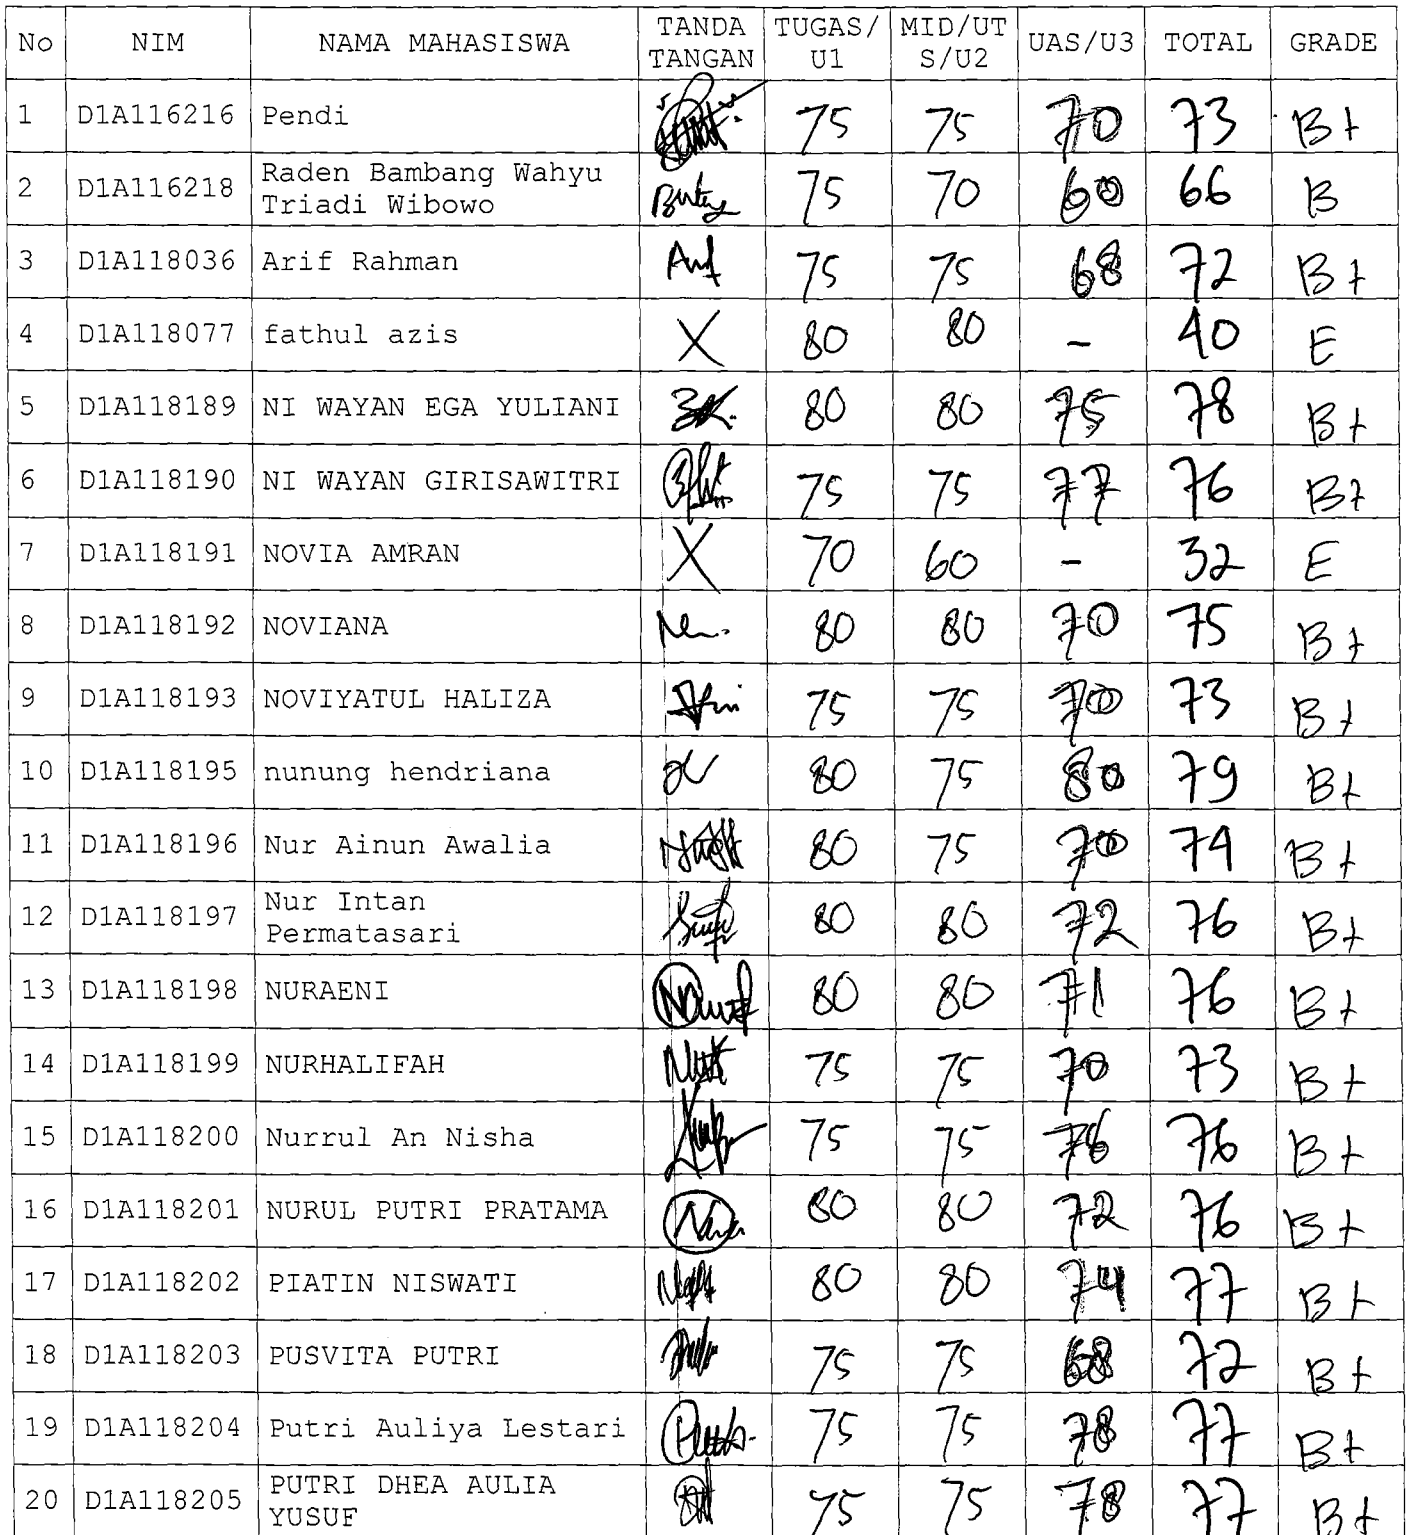 No NIM NAMA MAHASISWA TANDA TANGAN TUGAS/U1 MID/UTS/U2 UAS/U3 TOTAL GRADE
1 D1A116216 Pendi 75 75 70 73 B+
2 D1A116218 Raden Bambang Wahyu Triadi Wibowo 75 70 60 66 B
3 D1A118036 Arif Rahman 75 75 68 72 B+
4 D1A118077 fathul azis X 80 80 - 40 E
5 D1A118189 NI WAYAN EGA YULIANI 80 80 75 78 B+
6 D1A118190 NI WAYAN GIRISAWITRI 75 75 77 76 B+
7 D1A118191 NOVIA AMRAN X 70 60 - 32 E
8 D1A118192 NOVIANA 80 80 70 75 B+
9 D1A118193 NOVIYATUL HALIZA 75 75 70 73 B+
10 D1A118195 nunung hendriana 80 75 80 79 B+
11 D1A118196 Nur Ainun Awalia 80 75 70 74 B+
12 D1A118197 Nur Intan Permatasari 80 80 72 76 B+
13 D1A118198 NURAENI 80 80 71 76 B+
14 D1A118199 NURHALIFAH 75 75 70 73 B+
15 D1A118200 Nurrul An Nisha 75 75 76 76 B+
16 D1A118201 NURUL PUTRI PRATAMA 80 80 72 76 B+
17 D1A118202 PIATIN NISWATI 80 80 74 77 B+
18 D1A118203 PUSVITA PUTRI 75 75 68 72 B+
19 D1A118204 Putri Auliya Lestari 75 75 78 77 B+
20 D1A118205 PUTRI DHEA AULIA YUSUF 75 75 78 77 B+